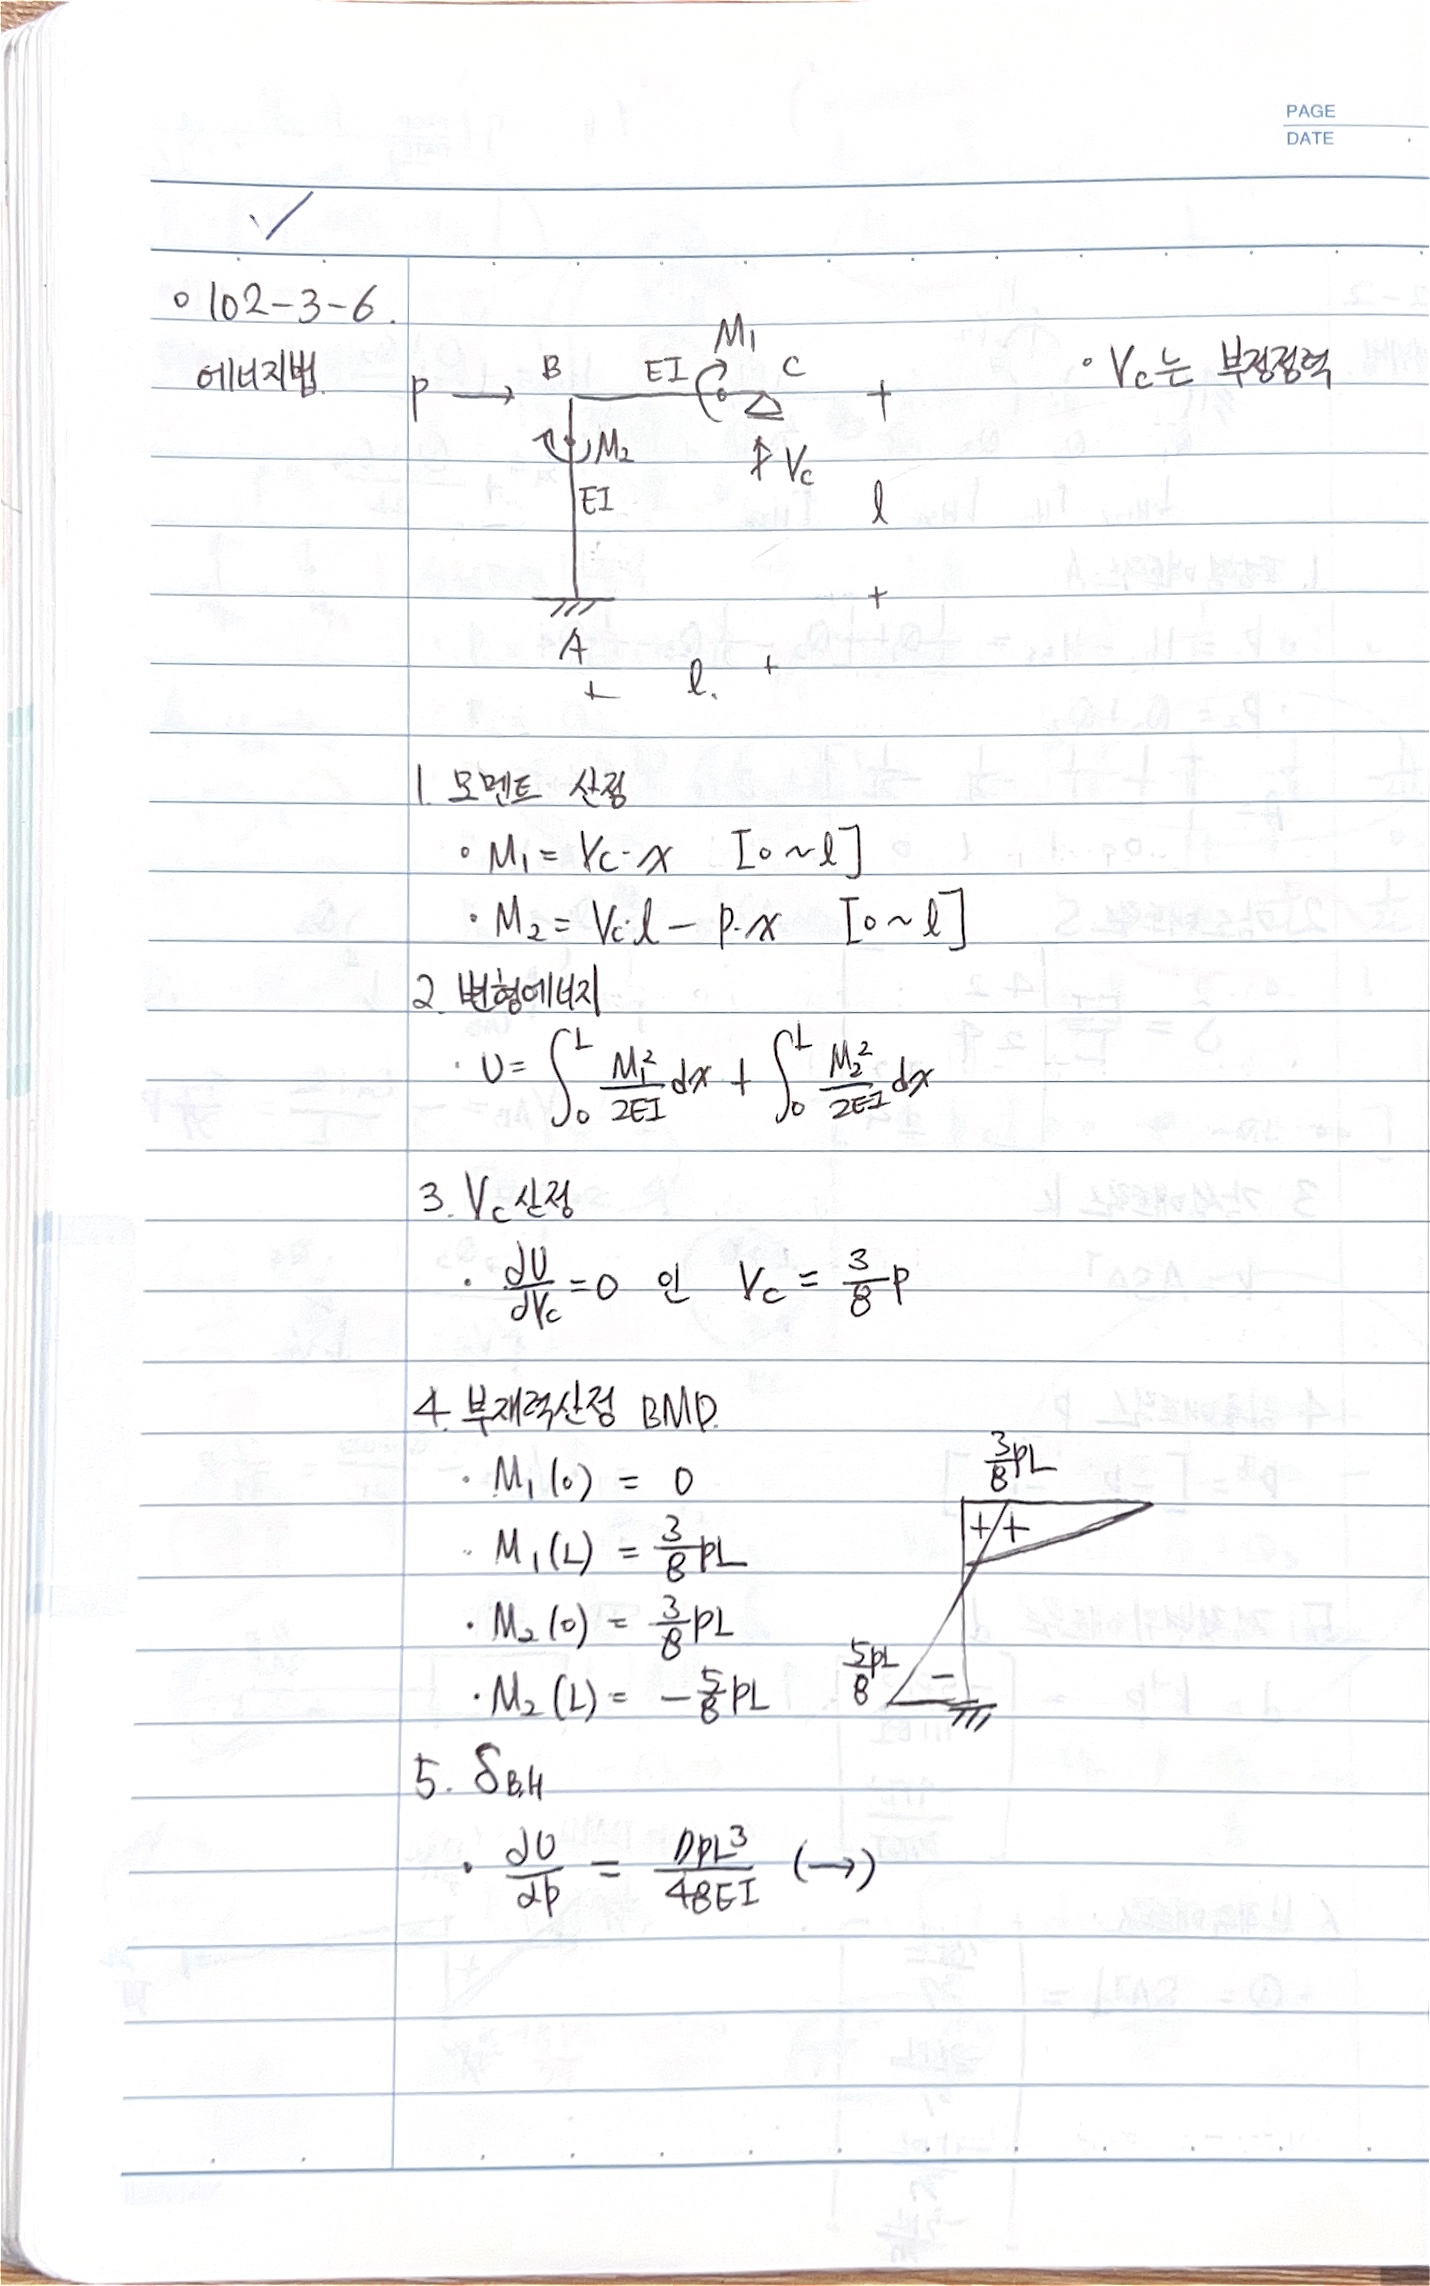 PAGE
DATE
✓
○ 102-3-6.
에너지법.
P → B EI M₁ C
• Vc는 부정정력
M₂
Vc
EI
l
A
l.
1. 모멘트 산정
• M₁ = Vc·x [0~l]
• M₂ = Vc·l - P·x [0~l]
2. 변형에너지
• U = ∫₀ᴸ M₁²/2EI dx + ∫₀ᴸ M₂²/2EI dx
3. Vc 산정
• ∂U/∂Vc = 0 인 Vc = 3/8 P
4. 부재력산정 BMD.
• M₁(0) = 0
• M₁(L) = 3/8 PL
• M₂(0) = 3/8 PL
• M₂(L) = - 5/8 PL
3/8 PL
+ +
5PL/8
-
5. δB,H
• ∂U/∂P = 7PL³/48EI (→)